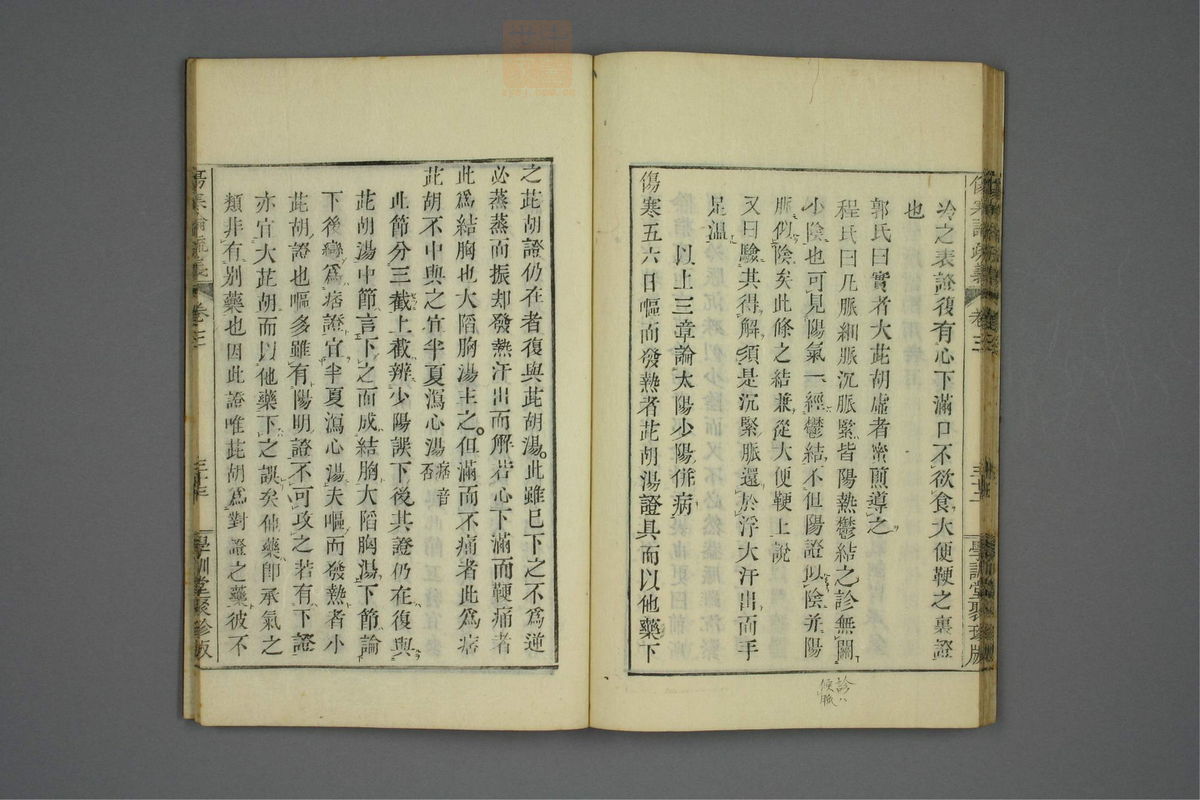 冷之表證復有心下滿口不欲食大便鞕之裏證
也
郭氏曰實者大茈胡虛者蜜煎導之
程氏曰凡脈細脈沉脈緊皆陽熱鬱結之診無關
少陰也可見陽氣一經鬱結不但陽證似陰并陽
脈似陰矣此條之結兼從大便鞕上說
又曰驗其得解須是沉緊脈還於浮大汗出而手
足溫
以上三章論太陽少陽併病
傷寒五六日嘔而發熱者茈胡湯證具而以他藥下
診ハ
候脈
傷寒論疏義
卷三
學訓堂聚珍版
之茈胡證仍在者復與茈胡湯。此雖已下之不爲逆
必蒸蒸而振却發熱汗出而解若心下滿而鞕痛者
此爲結胸也大陷胸湯主之。但滿而不痛者此爲痞
茈胡不中與之宜半夏瀉心湯 痞音否
此節分三截上截辨少陽誤下後其證仍在復與
茈胡湯中節言下之而成結胸大陷胸湯下節論
下後變爲痞證宜半夏瀉心湯夫嘔而發熱者小
茈胡證也嘔多雖有陽明證不可攻之若有下證
亦宜大茈胡而以他藥下之誤矣他藥卽承氣之
類非有別藥也因此證唯茈胡爲對證之藥彼不
傷寒論疏義
卷三
學訓堂聚珍版